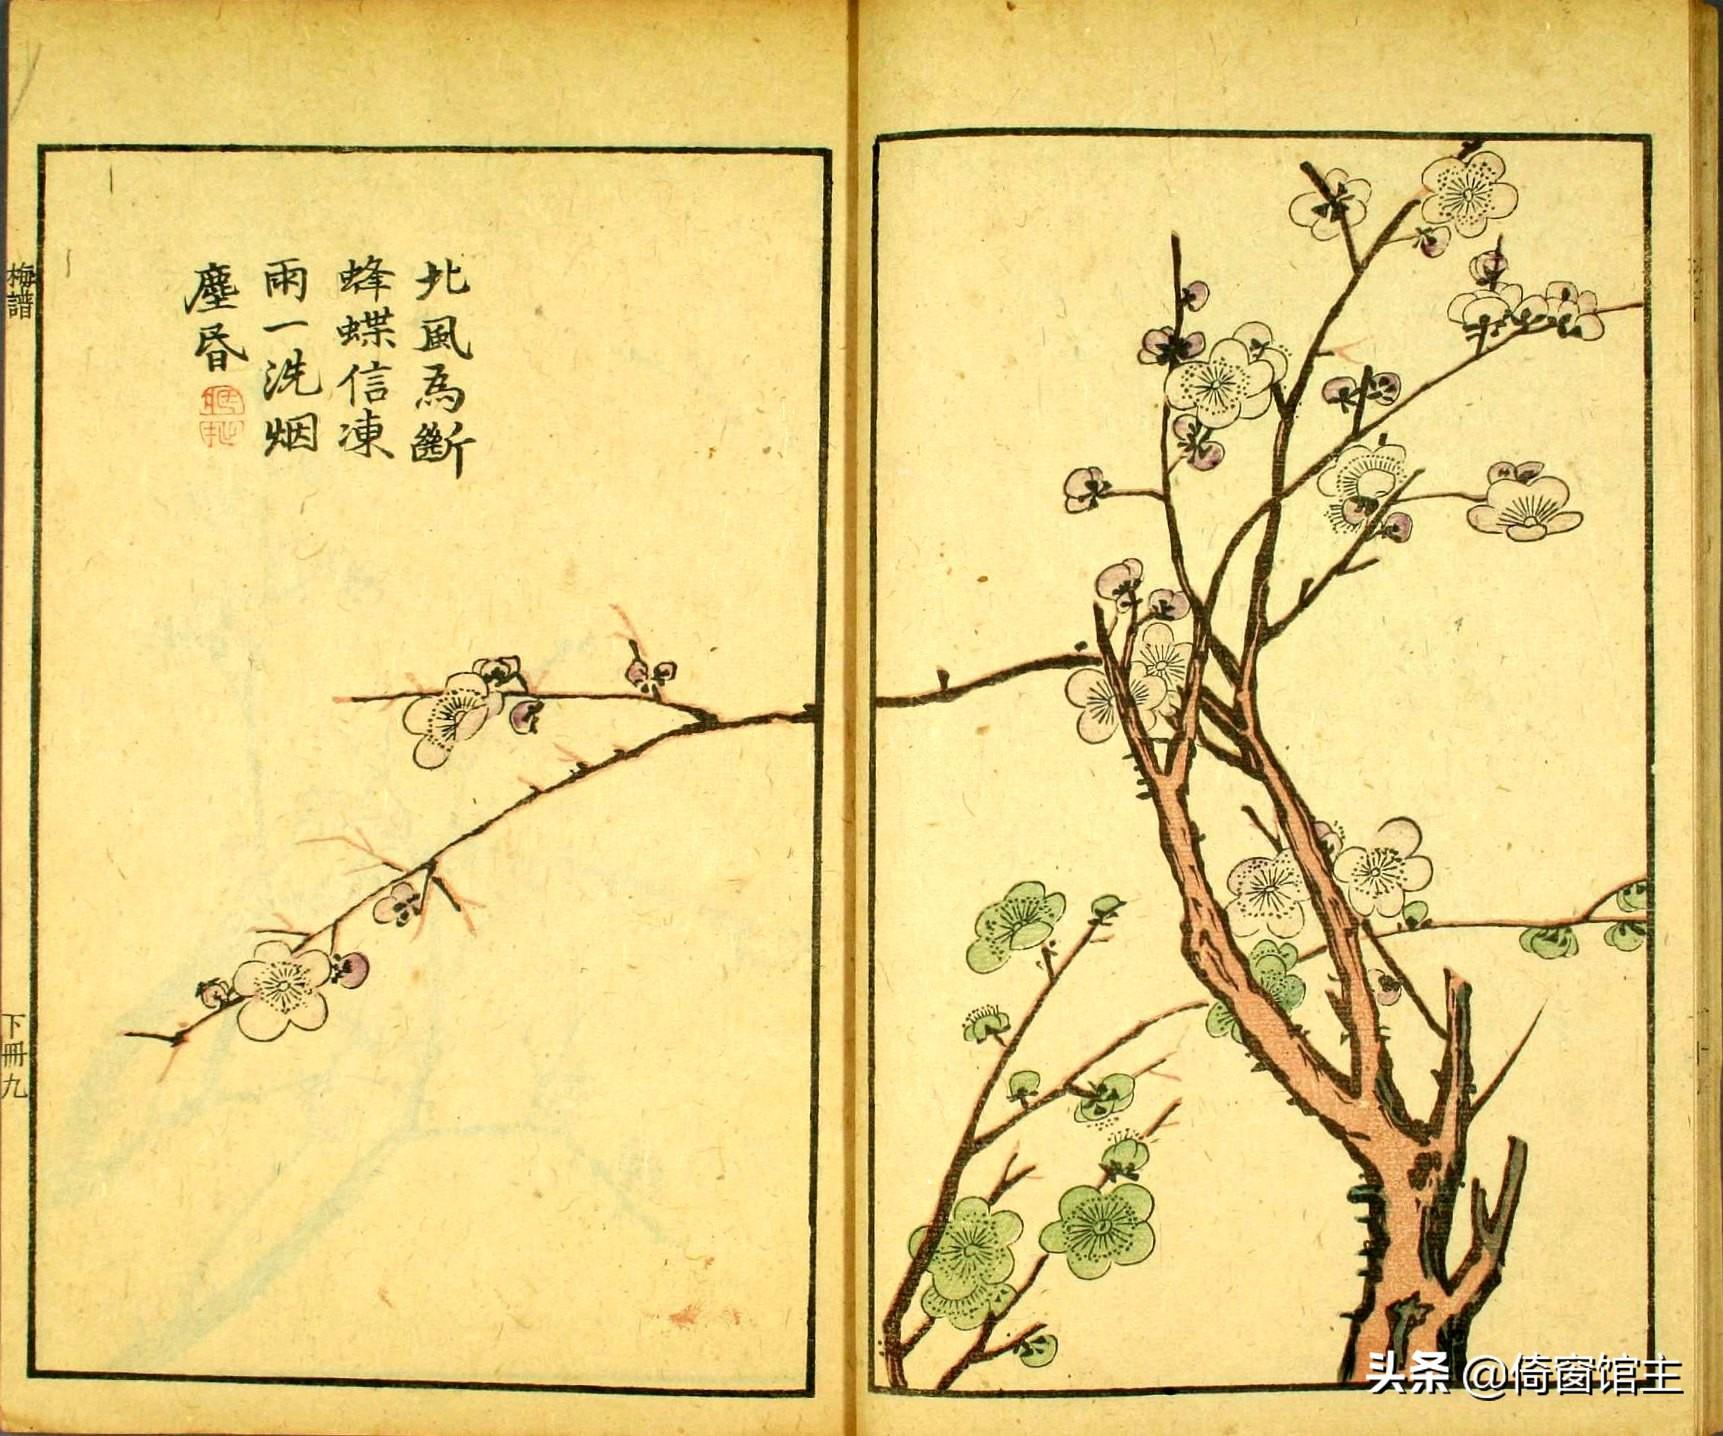 北風為斷
蜂蝶信凍
雨一洗烟
塵昏
梅譜
下冊九
头条 @倚窗馆主